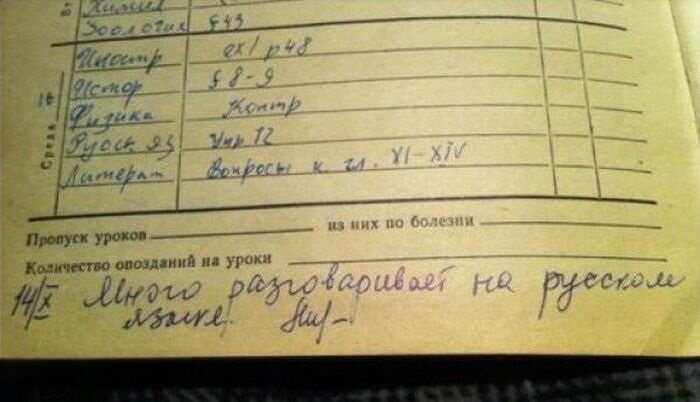 Химия
Зоология §43
Среда 16
Иностр ex1 p48
Истор § 8-9
Физика Контр
Русск яз Упр 12
Литерат Вопросы к гл. XI-XIV
Пропуск уроков из них по болезни
Количество опозданий на уроки
14/X Много разговаривает на русском
языке.